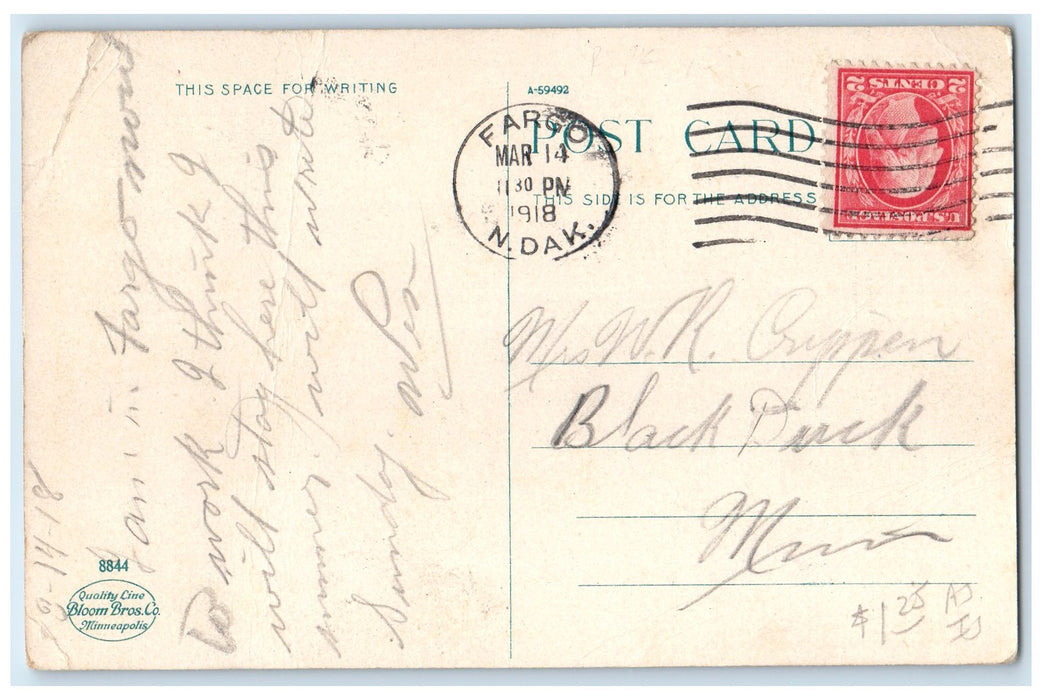 THIS SPACE FOR WRITING
A-59492
POST CARD
THIS SIDE IS FOR THE ADDRESS
FARGO
MAR 14
11 30 PM
1918
N. DAK.
2 CENTS 2
U.S. POSTAGE
-14-18
I am in Fargo now
To work. I think I
will stay here this
summer. will write
Sunday.
Mrs W. R. Crippen
Black Duck
Minn
8844
Quality Line
Bloom Bros. Co.
Minneapolis
$1 25
AS
IS